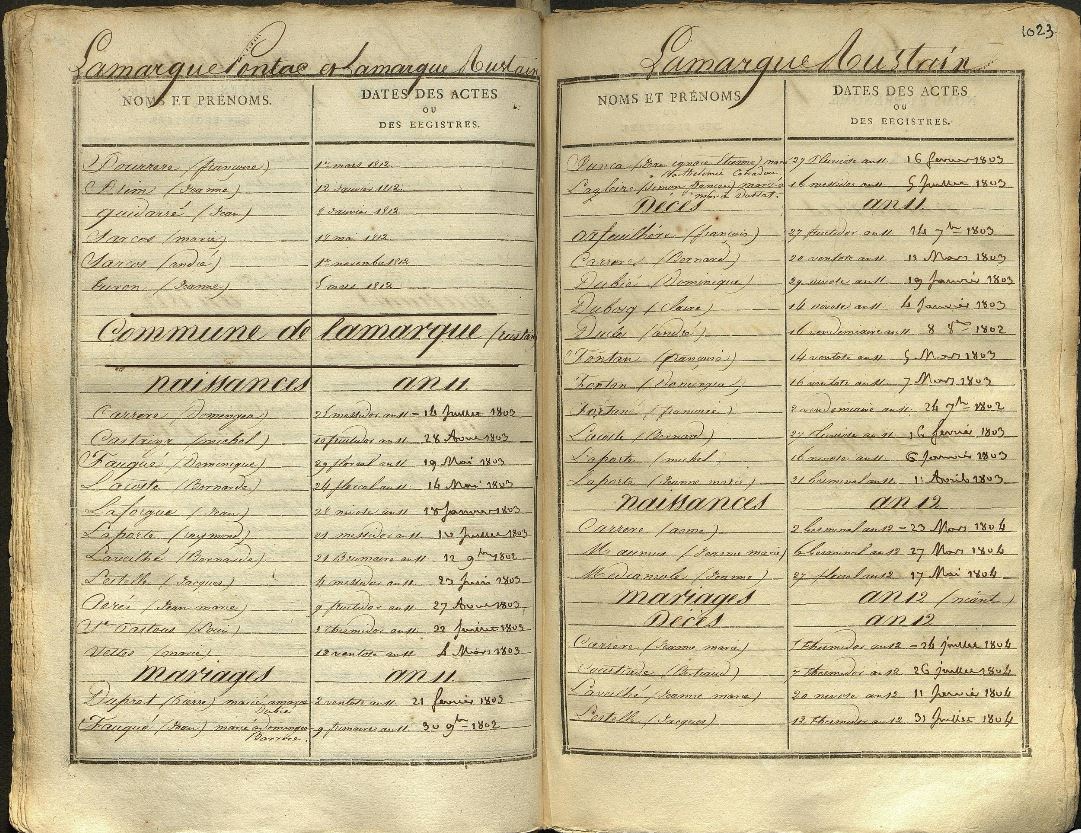 Lamarque Pontac et Lamarque Rustain
NOMS ET PRÉNOMS.
DATES DES ACTES
OU
DES REGISTRES.
(françoise) 1er mars 1812
(Jeanne) 12 Janvier 1812
Guidarré (Jean) 8 Janvier 1812
Sarcos (marie) 18 mai 1812
Sarcos (andré) 1er novembre 1812
(Jeanne) 5 mars 1812
Commune de lamarque (rustain
naissances an 11
Carrere (Domengea) 25 messidor an 11 - 14 Juillet 1803
(michel) 10 fructidor an 11 28 Aout 1803
Fauqué (Dominique) 29 floréal an 11 19 Mai 1803
Lacoste (Bernarde) 24 floreal an 11 14 Mai 1803
Laforgue (Jean) 28 nivose an 11 18 Janvier 1803
Laporte (raymond) 21 messidor an 11 10 Juillet 1803
Laveilhé (Bernarde) 21 Brumaire an 11 12 9bre 1802
Lestelle (Jacques) 4 messidor an 11 23 juin 1803
(Jean marie) 9 fructidor an 11 27 Aout 1803
thermidor an 11 22
(marie) 13 ventose an 11 4 Mars 1803
mariages an 11
Duprat (Pierre) marié, 2 ventose an 11 21 fevrier 1803
Dubié
Fauqué (Jean) marié a Domengea 9 frimaire an 11 30 9bre 1802
Barrère.
1023
Lamarque Rustain
NOMS ET PRÉNOMS
DATES DES ACTES
OU
DES REGISTRES.
27 Pluviose an 11 16 fevrier 1803
Barthelemie
(Simon Damien) 16 messidor an 11 5 Juillet 1803
marie
Décès an 11
(françois) 27 fructidor an 11 14 7bre 1803
Carrere (Bernard) 20 ventose an 11 11 Mars 1803
Dubié (Dominique) 29 nivose an 11 19 Janvier 1803
Dubosq (Claire) 14 nivose an 11 4 Janvier 1803
(andré) 16 vendemiaire an 11 8 8bre 1802
Fontan (françoise) 14 ventose an 11 5 Mars 1803
Fontan (Domengea) 16 ventose an 11 7 Mars 1803
Fontan (françoise) 2 vendemiaire an 11 24 7bre 1802
Lacoste (Bernard) 27 Pluviose an 11 16 fevrier 1803
Laporte (michel) 16 nivose an 11 6 Janvier 1803
Laporte (Jeanne marie) 21 Germinal an 11 11 Avril 1803
naissances an 12
Carrere (anne) 2 Germinal an 12 - 23 Mars 1804
(Jeanne marie) 6 Germinal an 12 27 Mars 1804
(Jeanne) 27 floreal an 12 17 Mai 1804
mariages an 12 (néant)
Décès an 12
Carrere (Jeanne marie) thermidor an 12 - 26 juillet 1804
(Bertrand) 7 thermidor an 12 26 juillet 1804
Laveilhé (Jeanne marie) 20 nivose an 12 11 Janvier 1804
Lestelle (Jacques) 12 thermidor an 12 31 Juillet 1804